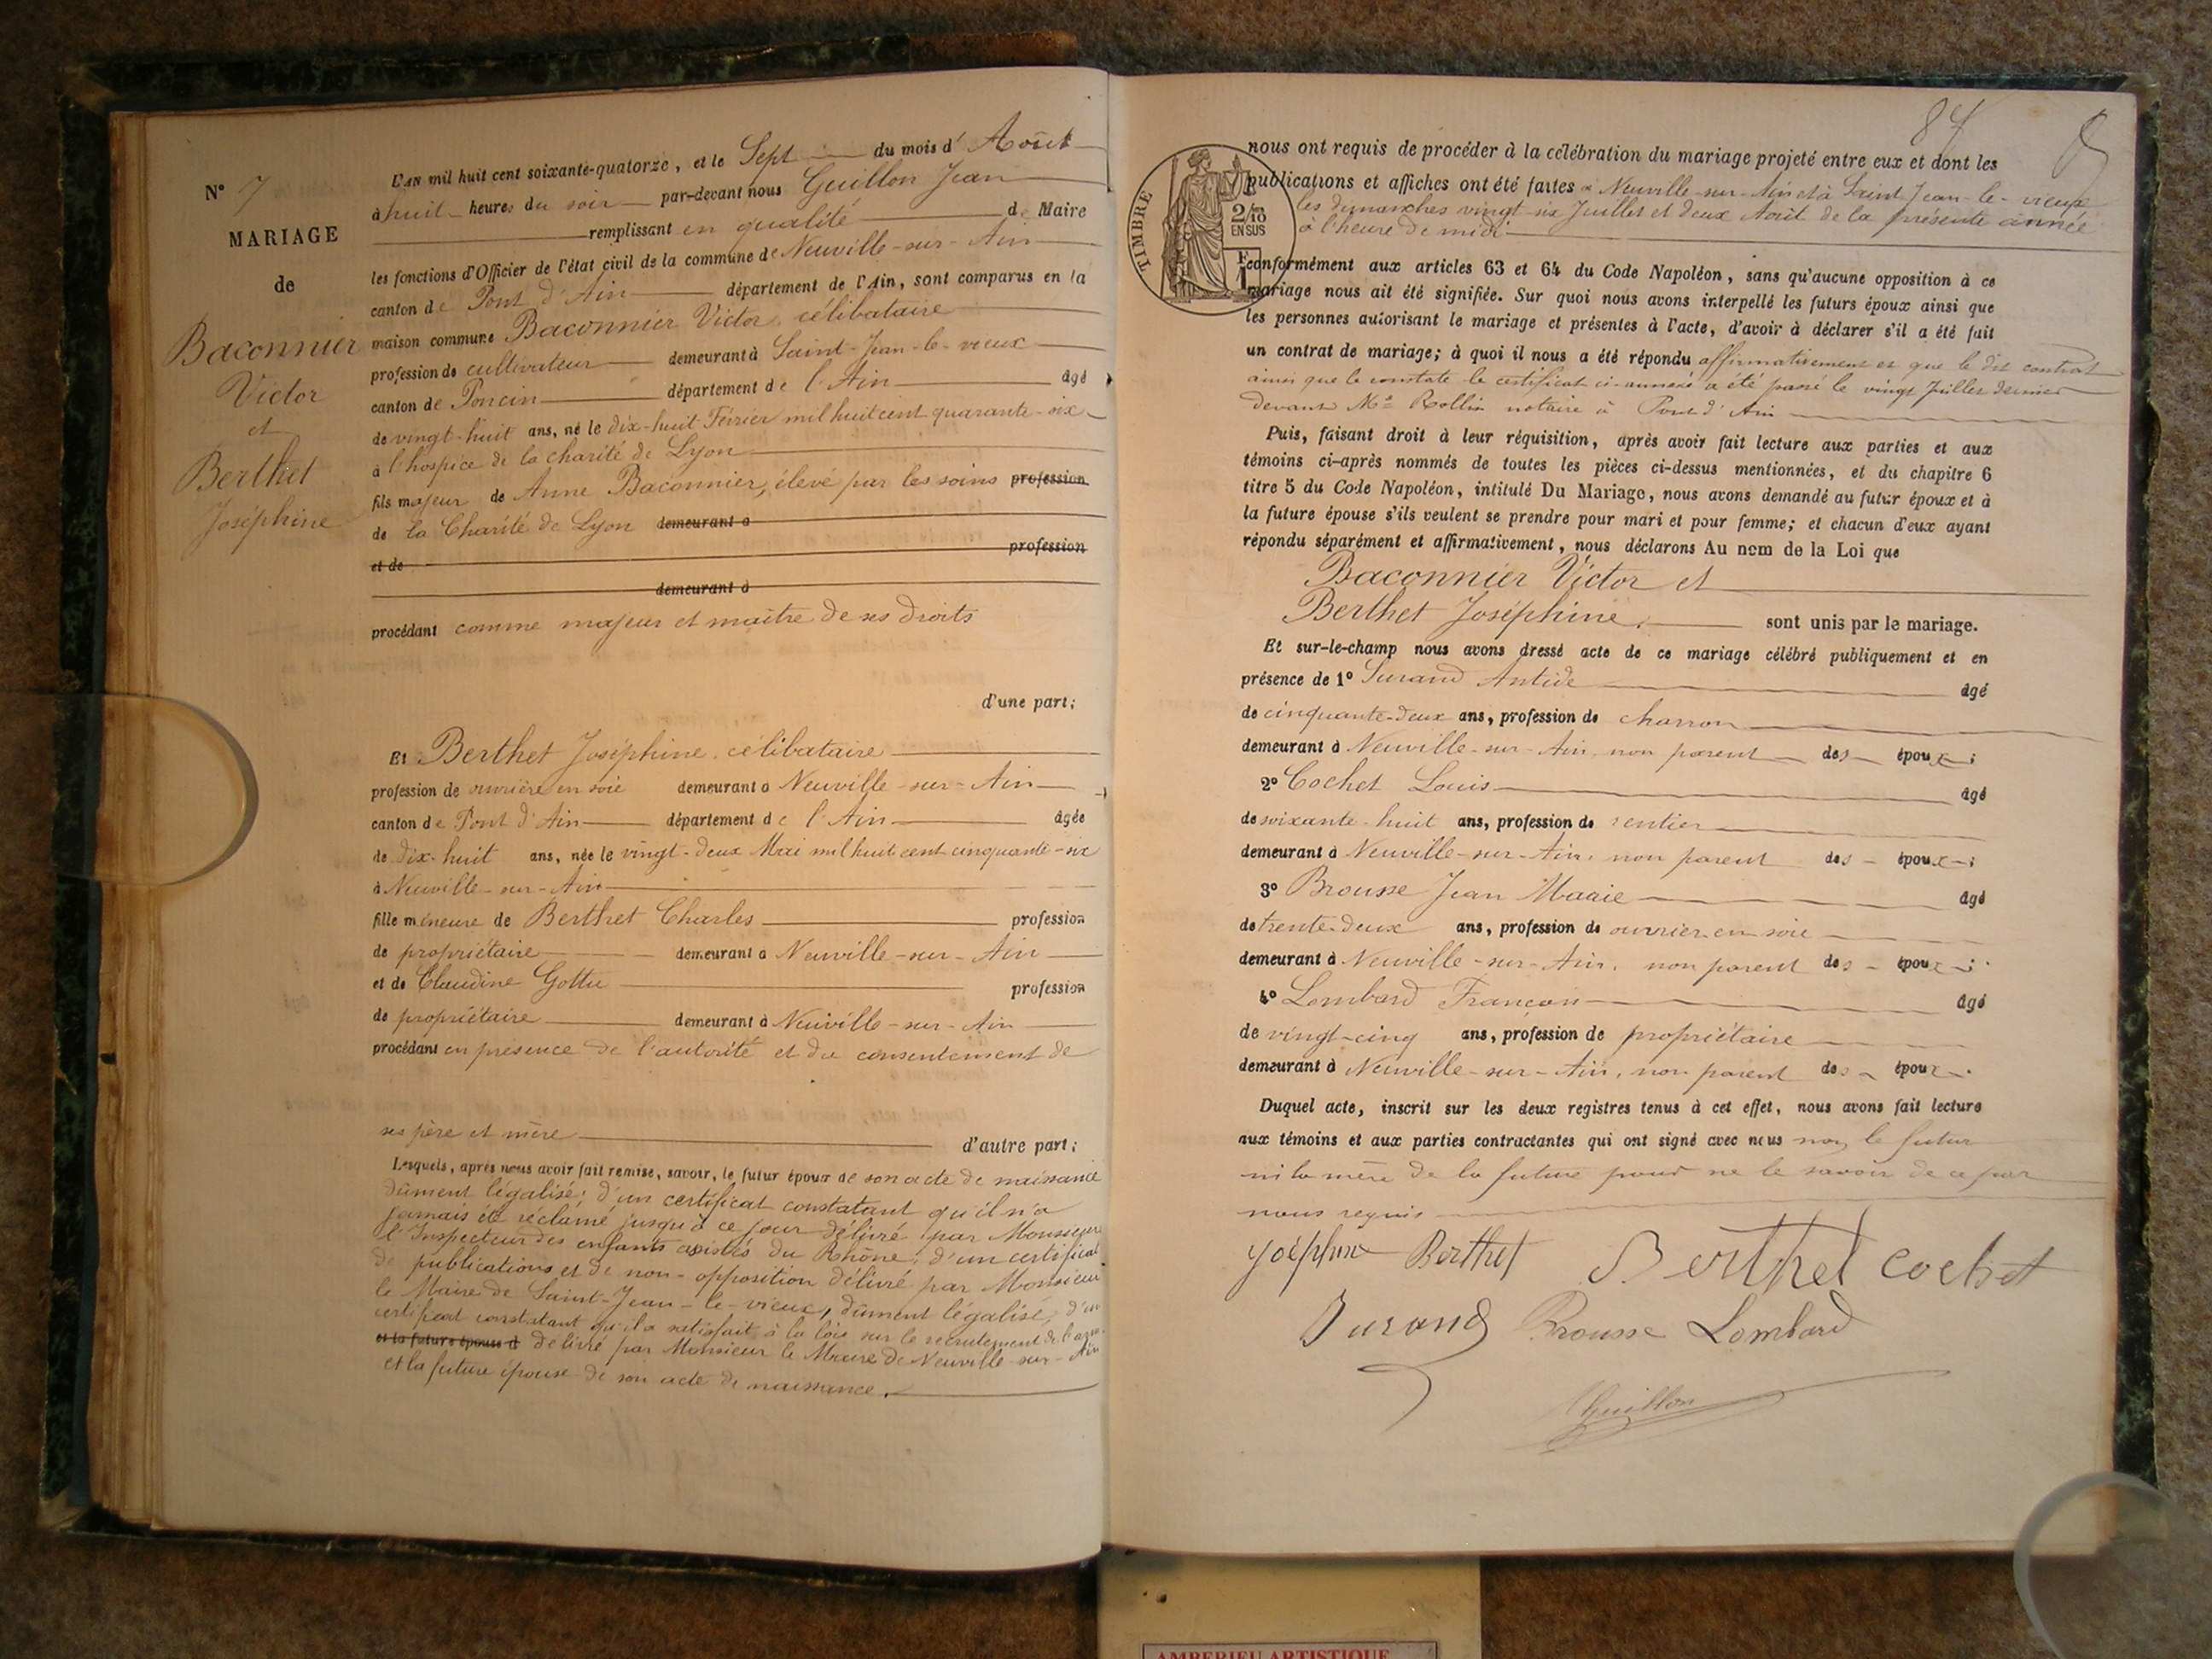 N° 7
MARIAGE
de
Baconnier
Victor
et
Berthet
Joséphine
L'an mil huit cent soixante-quatorze, et le Sept du mois d'Août
à huit heures du soir par-devant nous Guillon Jean
remplissant en qualité de Maire
les fonctions d'Officier de l'état civil de la commune de Neuville-sur-Ain
canton de Pont d'Ain département de l'Ain, sont comparus en la
maison commune Baconnier Victor, célibataire
profession de cultivateur demeurant à Saint-Jean-le-vieux
canton de Poncin département de l'Ain âgé
de vingt-huit ans, né le dix-huit Février mil huit cent quarante-six
à l'hospice de la charité de Lyon
fils majeur de Anne Baconnier, élevé par les soins profession
de la Charité de Lyon demeurant à
et de profession
demeurant à
procédant comme majeur et maître de ses droits
d'une part;
Et Berthet Joséphine, célibataire
profession de ouvrière en soie demeurant à Neuville-sur-Ain
canton de Pont d'Ain département de l'Ain âgée
de dix-huit ans, née le vingt-deux Mai mil huit cent cinquante-six
à Neuville-sur-Ain
fille mineure de Berthet Charles profession
de propriétaire demeurant à Neuville-sur-Ain
et de Claudine Gottu profession
de propriétaire demeurant à Neuville-sur-Ain
procédant en présence de l'autorité et du consentement de
ses père et mère d'autre part;
Lesquels, après nous avoir fait remise, savoir, le futur époux de son acte de naissance
dûment légalisé; d'un certificat constatant qu'il n'a
jamais été réclamé jusqu'à ce jour délivré par Monsieur
l'Inspecteur des enfants assistés du Rhône; d'un certificat
de publications et de non-opposition délivré par Monsieur
le Maire de Saint-Jean-le-vieux, dûment légalisé, d'un
certificat constatant qu'il a satisfait à la loi sur le recrutement de l'
et la future épouse d délivré par Monsieur le Maire de Neuville-sur-Ain
et la future épouse de son acte de naissance.
87
TIMBRE
2/10
EN SUS
nous ont requis de procéder à la célébration du mariage projeté entre eux et dont les
publications et affiches ont été faites à Neuville-sur-Ain et à Saint Jean-le-vieux
les dimanches vingt-six Juillet et deux Août de la présente année
à l'heure de midi
conformément aux articles 63 et 64 du Code Napoléon, sans qu'aucune opposition à ce
mariage nous ait été signifiée. Sur quoi nous avons interpellé les futurs époux ainsi que
les personnes autorisant le mariage et présentes à l'acte, d'avoir à déclarer s'il a été fait
un contrat de mariage; à quoi il nous a été répondu affirmativement et que le dit contrat
ainsi que le constate le certificat ci-annexé a été passé le vingt Juillet dernier
devant Me Rollin notaire à Pont d'Ain
Puis, faisant droit à leur réquisition, après avoir fait lecture aux parties et aux
témoins ci-après nommés de toutes les pièces ci-dessus mentionnées, et du chapitre 6
titre 5 du Code Napoléon, intitulé Du Mariage, nous avons demandé au futur époux et à
la future épouse s'ils veulent se prendre pour mari et pour femme; et chacun d'eux ayant
répondu séparément et affirmativement, nous déclarons Au nom de la Loi que
Baconnier Victor et
Berthet Joséphine, sont unis par le mariage.
Et sur-le-champ nous avons dressé acte de ce mariage célébré publiquement et en
présence de 1° Durand Antide âgé
de cinquante-deux ans, profession de charron
demeurant à Neuville-sur-Ain, non parent des époux;
2° Cochet Louis âgé
de soixante-huit ans, profession de rentier
demeurant à Neuville-sur-Ain, non parent des époux;
3° Brousse Jean Marie âgé
de trente-deux ans, profession de ouvrier en soie
demeurant à Neuville-sur-Ain, non parent des époux;
4° Lombard François âgé
de vingt-cinq ans, profession de propriétaire
demeurant à Neuville-sur-Ain, non parent des époux.
Duquel acte, inscrit sur les deux registres tenus à cet effet, nous avons fait lecture
aux témoins et aux parties contractantes qui ont signé avec nous non le futur
ni la mère de la future pour ne le savoir de ce par
nous requis
Berthet Berthet Cochet
Durand Brousse Lombard
Guillon
AMBERIEU ARTISTIQUE